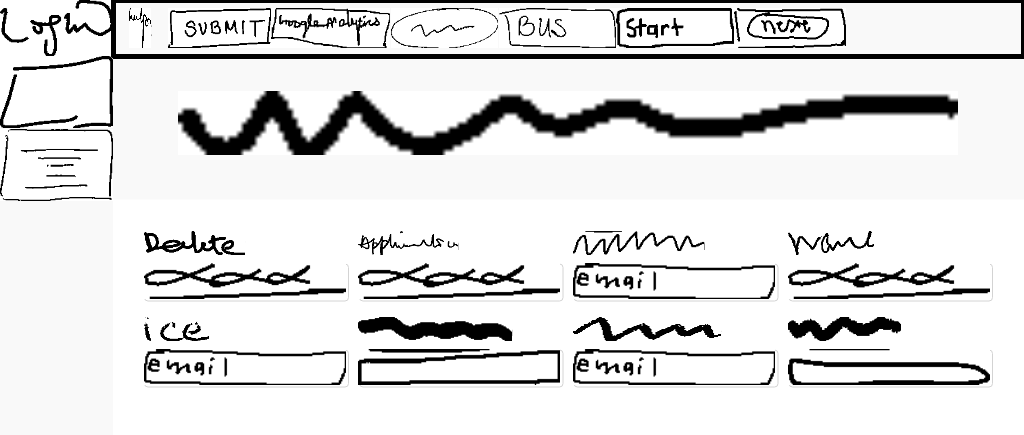 Login
help.
SUBMIT
Google Analytics
BUS
Start
next
Delete
Application
Name
email
ice
email
email